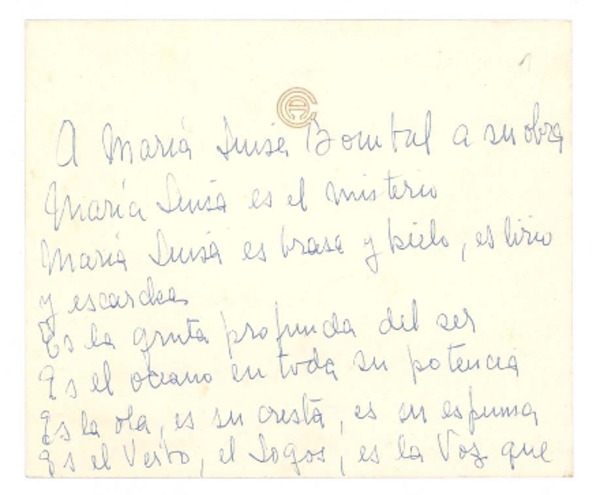 A María Luisa Bombal a su obra
María Luisa es el misterio
María Luisa es brasa y hielo, es lirio
y escarcha
Es la gruta profunda del ser
Es el océano en toda su potencia
Es la ola, es su cresta, es su espuma
Es el Verbo, el Logos, es la Voz que